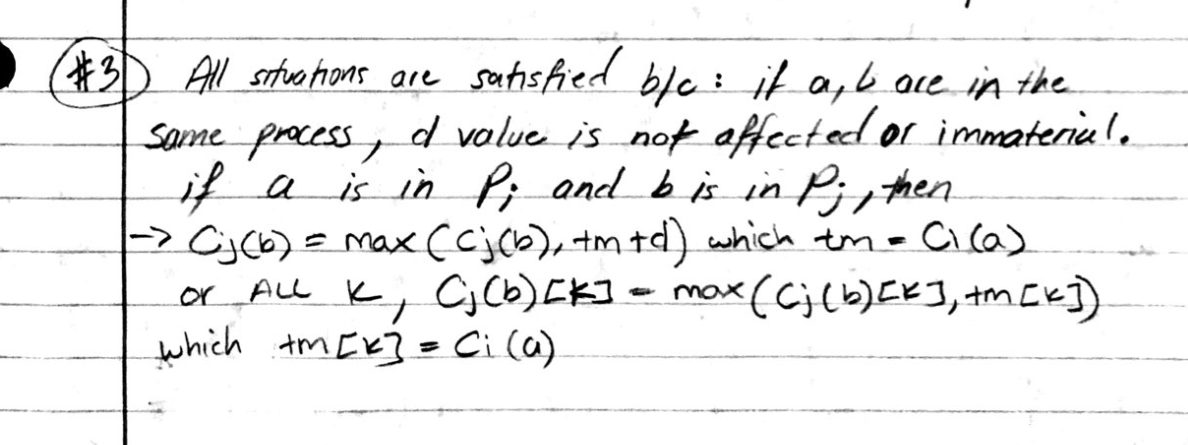 #3) All situations are satisfied b/c : if a, b are in the
same process, d value is not affected or immaterial.
if a is in Pi and b is in Pj, then
-> Cj(b) = max (Cj(b), tm + d) which tm = Ci(a)
or ALL K, Cj(b)[K] = max(Cj(b)[K], tm[K])
which tm[K] = Ci(a)